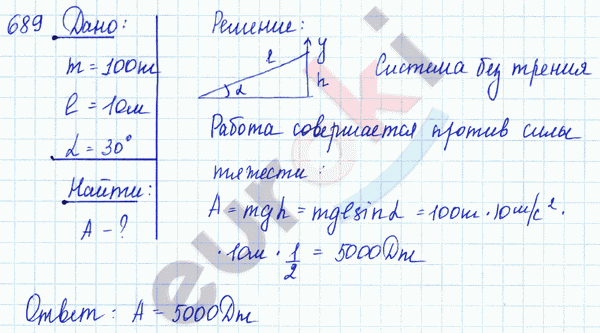 689 Дано:
m = 100т
l = 10м
α = 30°
Найти:
A - ?
Решение:
l
y
α
h
Система без трения
Работа совершается против силы
тяжести:
A = mgh = mglsinα = 100т · 10м/с² ·
· 10м · 1/2 = 5000Дж
Ответ: A = 5000Дж
euroki